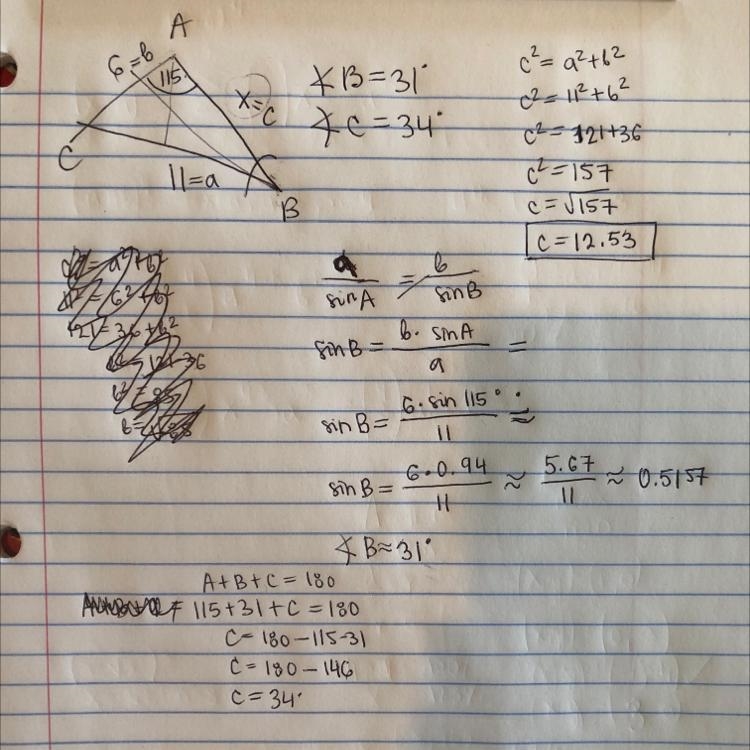 A
6=b
115°
x=c
C
11=a
B
∡B=31°
∡C=34°
c²=a²+b²
c²=11²+6²
c²=121+36
c²=157
c=√157
c=12.53
a/sinA = b/sinB
sinB = b·sinA/a =
sinB = 6·sin115°/11 ≈
sinB = 6·0.94/11 ≈ 5.67/11 ≈ 0.5157
∡B≈31°
A+B+C=180
= 115+31+C=180
C=180-115-31
C=180-146
C=34°